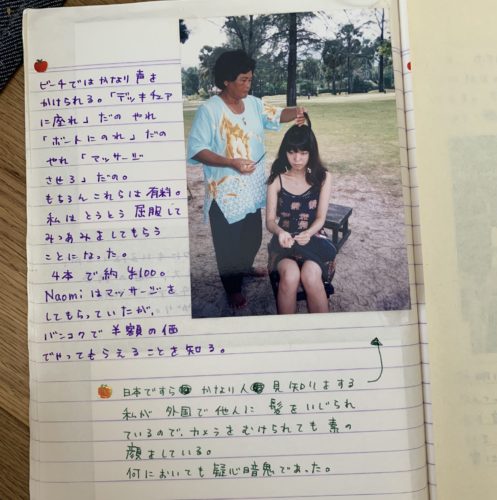 ビーチではかなり声を
かけられる。「デッキチェア
に座れ」だの やれ
「ボートにのれ」だの
やれ「マッサージ
させろ」だの。
もちろんこれらは有料。
私はとうとう屈服して
みつあみをしてもらう
ことになった。
4本で約¥100。
Naomiはマッサージを
してもらっていたが、
バンコクで半額の値
でやってもらえることを知る。
日本ですら かなり人 見知りをする
私が 外国で他人に 髪をいじられ
ているので、カメラをむけられても素の
顔をしている。
何においても疑心暗鬼であった。